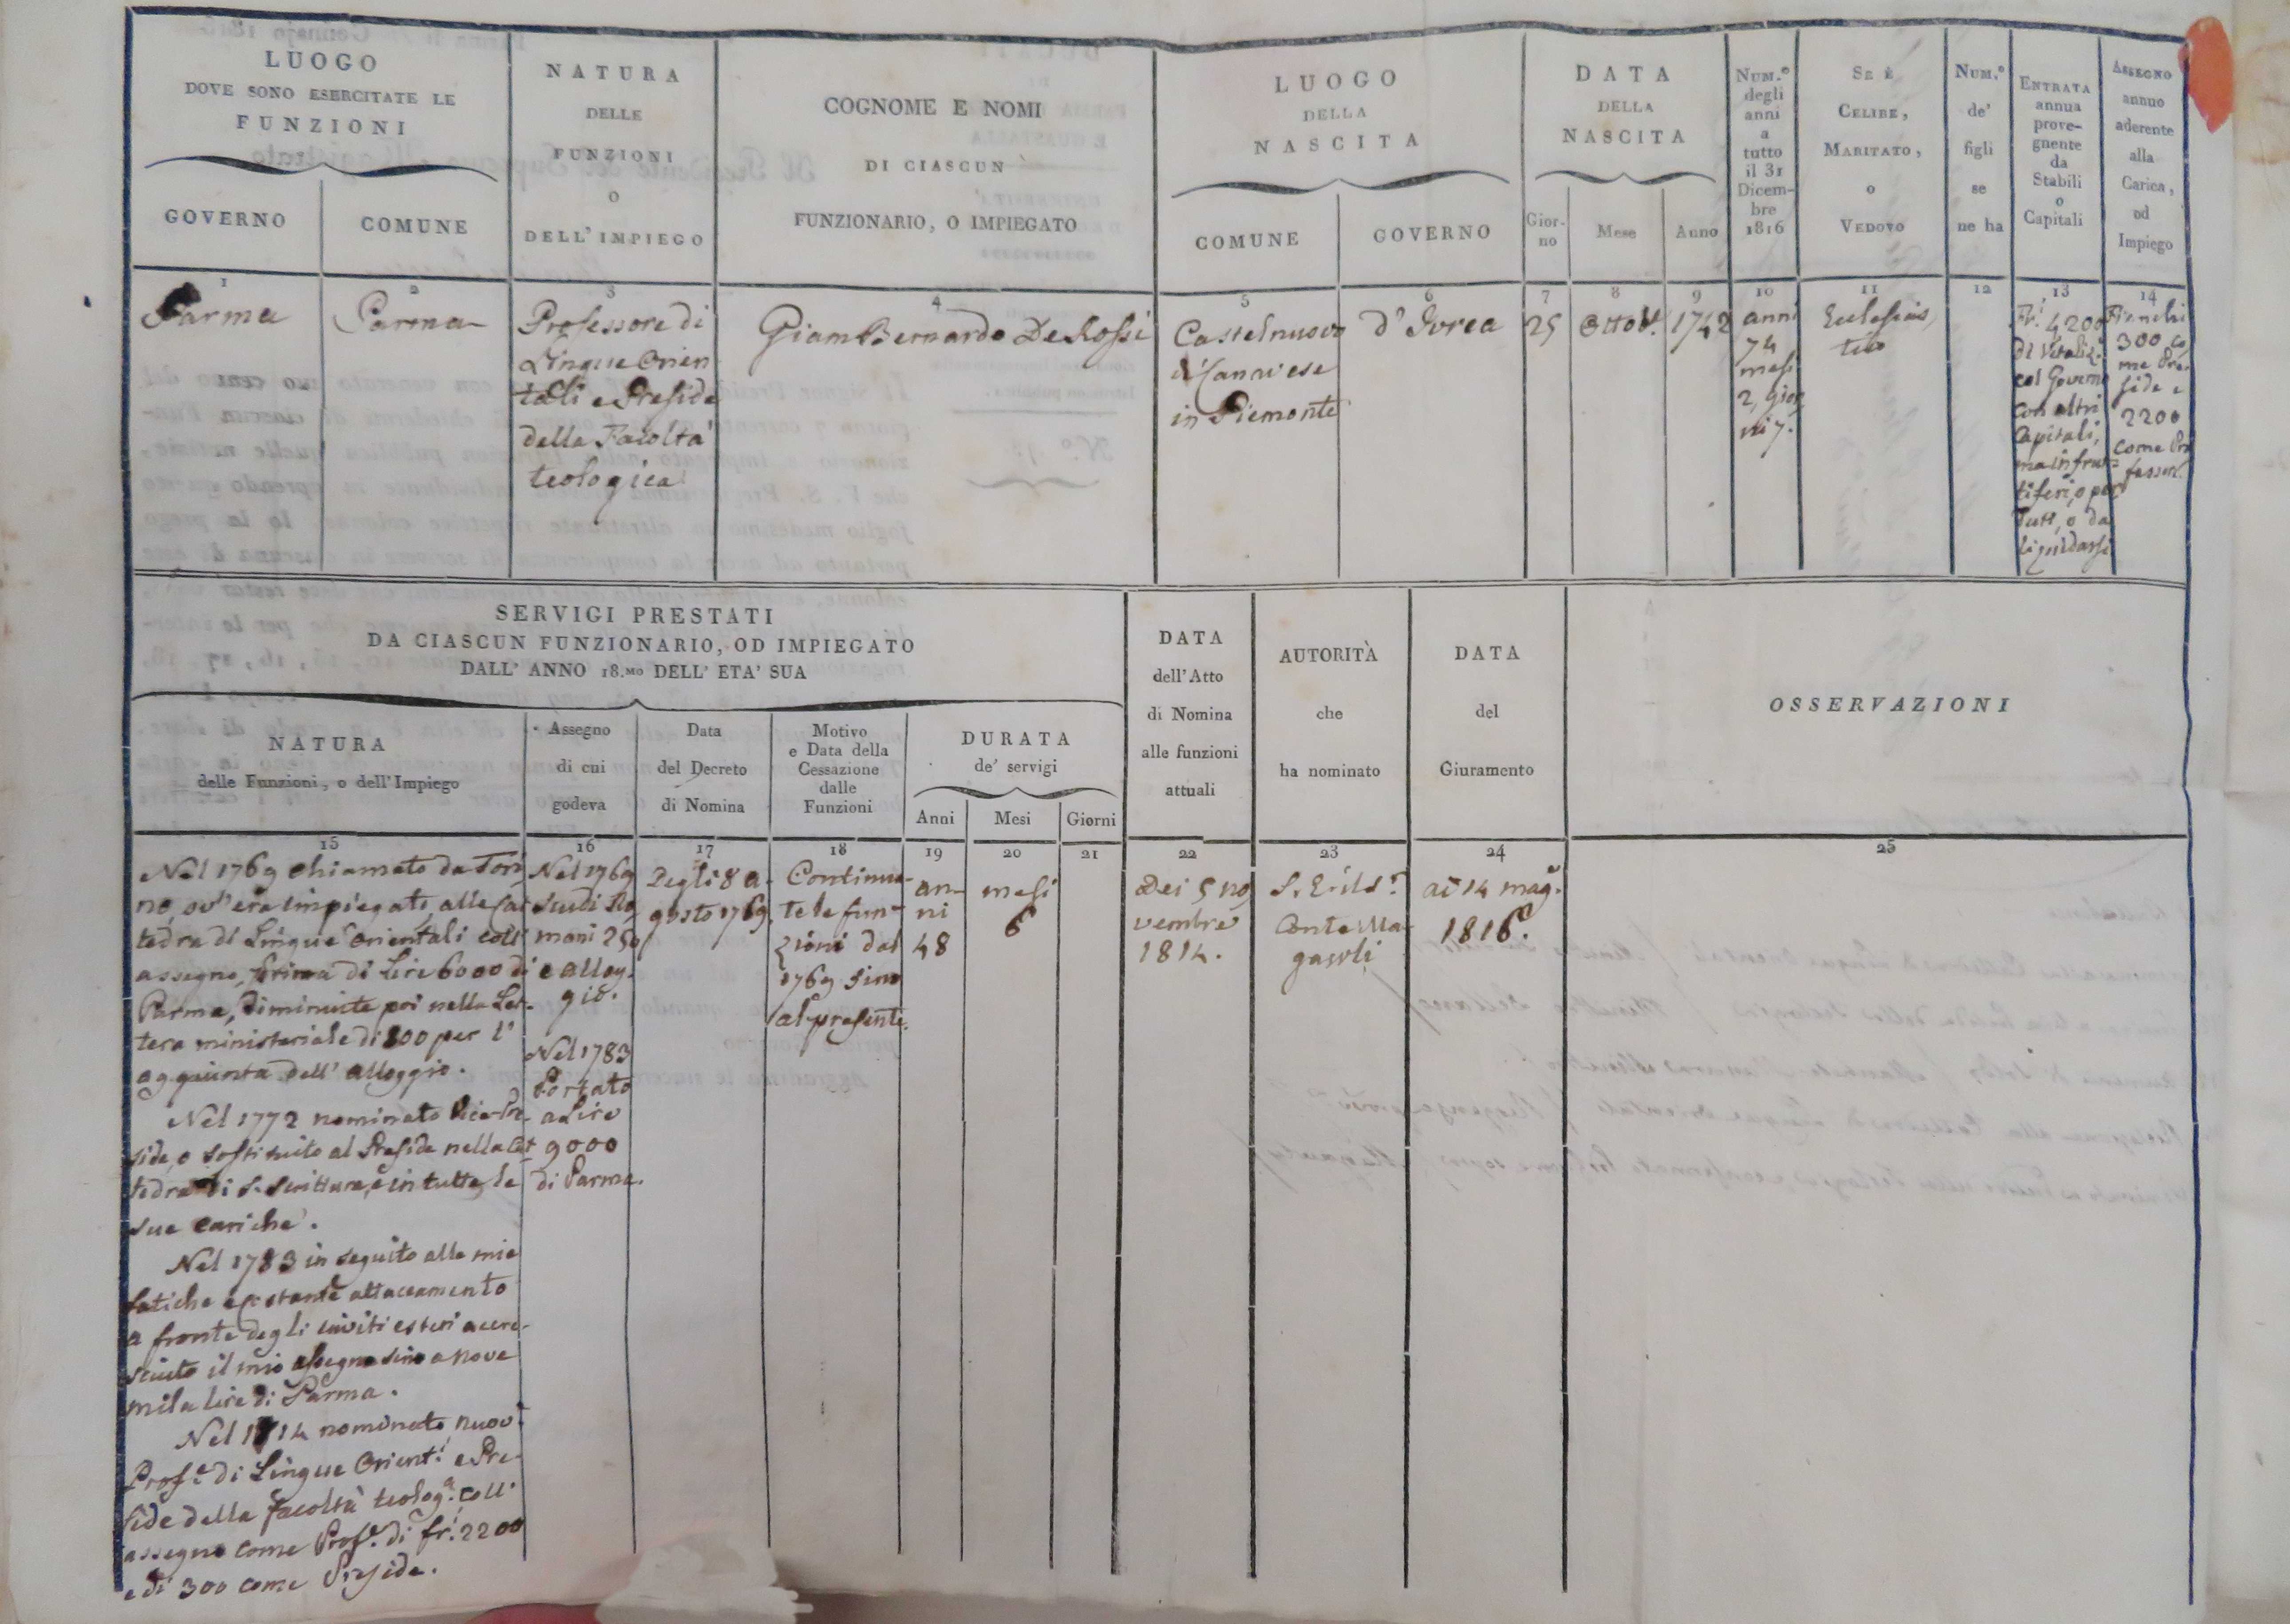 LUOGO
DOVE SONO ESERCITATE LE
FUNZIONI
GOVERNO
COMUNE
NATURA
DELLE
FUNZIONI
O
DELL'IMPIEGO
COGNOME E NOMI
DI CIASCUN
FUNZIONARIO, O IMPIEGATO
LUOGO
DELLA
NASCITA
COMUNE
GOVERNO
DATA
DELLA
NASCITA
Gior-
no
Mese
Anno
NUM.º
degli
anni
a
tutto
il 31
Dicem-
bre
1816
SE È
CELIBE,
MARITATO,
O
VEDOVO
NUM.º
de'
figli
se
ne ha
ENTRATA
annua
prove-
gnente
da
Stabili
o
Capitali
ASSEGNO
annuo
aderente
alla
Carica,
od
Impiego
1
Parma
2
Parma
3
Professore di
Lingue Orien
tali e Preside
della Facoltà
teologica
4
GiamBernardo DeRossi
5
Castelnuovo
di Canavese
in Piemonte
6
d'Ivrea
7
25
8
Ottob.e
9
1742
10
anni
74
mesi
2, gior
ni 7.
11
Ecclesias,
tico
12
13
Fr. 4200
di Vitaliz.
col Governo
con altri
Capitali,
ma infrut-
tiferi, o per
duti, o da
liquidarsi
14
Franchi
300 co
me Pre
side e
2200
come Pro
fessore.
SERVIGI PRESTATI
DA CIASCUN FUNZIONARIO, OD IMPIEGATO
DALL' ANNO 18.MO DELL' ETA' SUA
NATURA
delle Funzioni, o dell'Impiego
Assegno
di cui
godeva
Data
del Decreto
di Nomina
Motivo
e Data della
Cessazione
dalle
Funzioni
DURATA
de' servigi
Anni
Mesi
Giorni
DATA
dell'Atto
di Nomina
alle funzioni
attuali
AUTORITÀ
che
ha nominato
DATA
del
Giuramento
OSSERVAZIONI
15
Nel 1769 chiamato da Tori
no, ov'era impiegato, alla Cat
tedra di Lingue orientali coll'
assegno, prima di Lire 6000 di
Parma, diminuite poi nella Let-
tera ministeriale di 800 per l'
aggiunta dell' alloggio.
Nel 1772 nominato Vice-Pre
side, o sostituito al Preside nella Cat
tedra di S. Scrittura, e in tutte le
sue cariche.
Nel 1783 in seguito alle mie
fatiche e costante attaccamento
a fronte degli inviti esteri accre-
sciuto il mio assegno sino a nove
mila lire di Parma.
Nel 1814 nominato nuov.e
Prof.e di Lingue Orient.i e Pre-
side della facoltà teolog.a coll'
assegno come Prof.e di fr. 2200
e di 300 come Preside.
16
Nel 1769
Scudi Ro
mani 250
e allog-
gio.
Nel 1783
Portato
a Lire
9000
di Parma.
17
Degli 8 a-
gosto 1769
18
Continua-
te le fun-
zioni dal
1769 sino
al presente.
19
an-
ni
48
20
mesi
6
21
22
Dei 5 no
vembre
1814.
23
Conte Ma
gawli
24
ai 14 mag.o
1816.
25